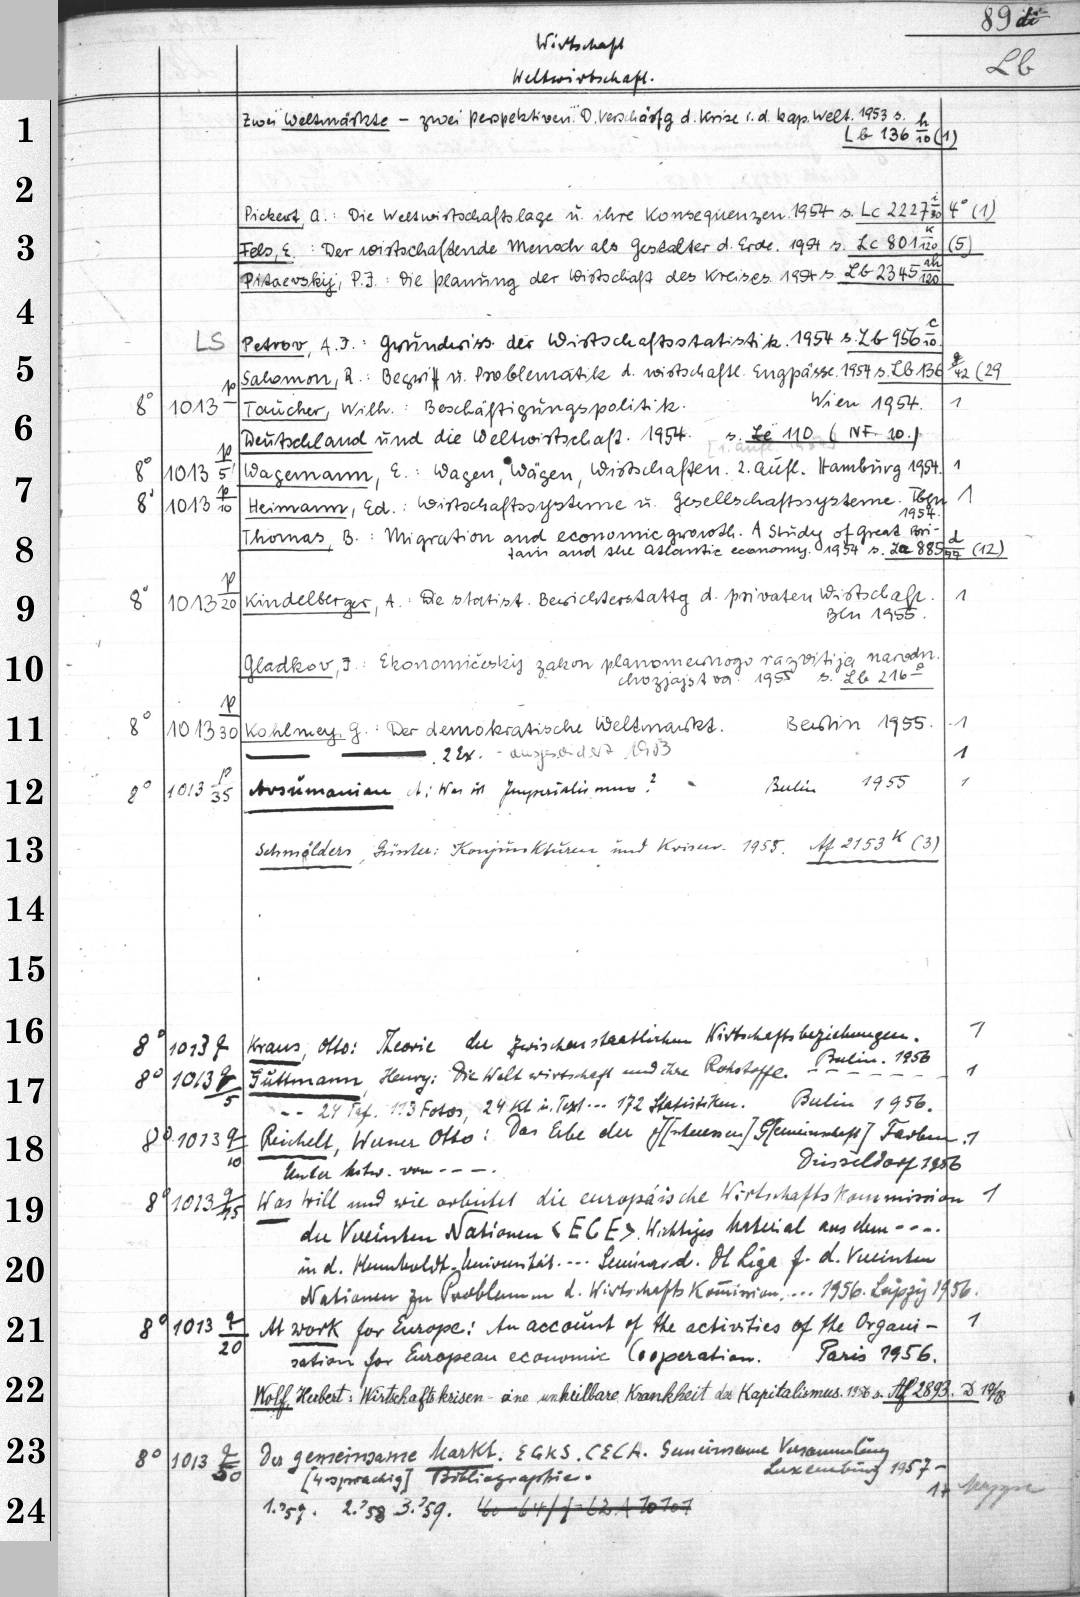 89
Lb
Wirtschaft
Weltwirtschaft.
1
Zwei Weltmärkte – zwei Perspektiven. D. Verschärfg d. Krise i. d. kap. Welt. 1953 s.
Lb 136 h/10 (1)
2
Pickert, A.: Die Weltwirtschaftslage u. ihre Konsequenzen. 1954 s. Lc 2227 i/30 4° (1)
3
Fels, E. : Der wirtschaftende Mensch als Gestalter d. Erde. 1954 s. Lc 801 k/120 (5)
Pisaevskij, P.I.: Die Planung der Wirtschaft des Kreises. 1954 s. Lb 2345 ah/120
4
LS Petrov, A.I.: Grundriss der Wirtschaftsstatistik. 1954 s. Lb 956 c/10.
5
Salomon, R.: Begriff u. Problematik d. wirtschaftl. Engpässe. 1954 s. Lb 136 g/42 (29
8° 1013 p Taucher, Wilh.: Beschäftigungspolitik. Wien 1954. 1
6
Deutschland und die Weltwirtschaft. 1954. s. Le 110 (NF. 10.)
8° 1013 p/5 Wagemann, E.: Wagen, Wägen, Wirtschaften. 2. Aufl. Hamburg 1954. 1
7
8° 1013 p/10 Heimann, Ed.: Wirtschaftssysteme u. Gesellschaftssysteme. Tbgn 1
1954.
8
Thomas, B.: Migration and economic growth. A Study of Great Bri-
tain and the Atlantic economy. 1954 s. La 885 d/77 (12)
9
8° 1013 p/20 Kindelberger, A.: De statist. Berichterstattg d. privaten Wirtschaft. 1
Bln 1955.
10
Gladkov, I.: Ekonomičeskij zakon planomernogo razvitija narodn.
chozjajstva. 1955 s. Lb 216 o
11
8° 1013 p/30 Kohlmey, G.: Der demokratische Weltmarkt. Berlin 1955. 1
2 Ex. - ausgesondert 1
12
8° 1013 p/35 Arsumanian A.: Was ist Imperialismus? Berlin 1955 1
13
Schmölders, Günter: Konjunkturen und Krisen. 1955. Af 2153 k (3)
14
15
16
8° 1013 q Kraus, Otto: Theorie der zwischenstaatlichen Wirtschaftsbeziehungen. 1
Berlin. 1956
17
8° 1013 q/5 Guttmann, Henry: Die Weltwirtschaft und ihre Rohstoffe. 1
-- 24 Taf. 113 Fotos, 24 Kt i. Text --- 172 Statistiken. Berlin 1956.
18
8° 1013 q/10 Reichelt, Werner Otto: Das Erbe der I[nteressen] G[emeinschaft] Farben. 1
Unter Mitw. von ---. Düsseldorf 1956
19
8° 1013 q/15 Was will und wie arbeitet die europäische Wirtschaftskommission 1
der Vereinten Nationen <ECE>. Wichtiges Material aus dem ----
20
in d. Humboldt-Universität. --- Seminar d. Dt Liga f. d. Vereinten
Nationen zu Problemen d. Wirtschafts Kom̅ission, ... 1956. Leipzig 1956.
21
8° 1013 q/20 At work for Europe: An account of the activities of the Organi- 1
sation for European economic Cooperation. Paris 1956.
22
Wolf, Herbert: Wirtschaftskrisen - eine unheilbare Krankheit des Kapitalismus. 1956 s. Af 2893. D 19/18
23
8° 1013 q/50 Der gemeinsame Markt. EGKS. CECA. Gemeinsame Versammlung
[4-sprachig] Bibliographie. Luxemburg 1957 –
24
1.'57. 2.'58 3.'59. 1+